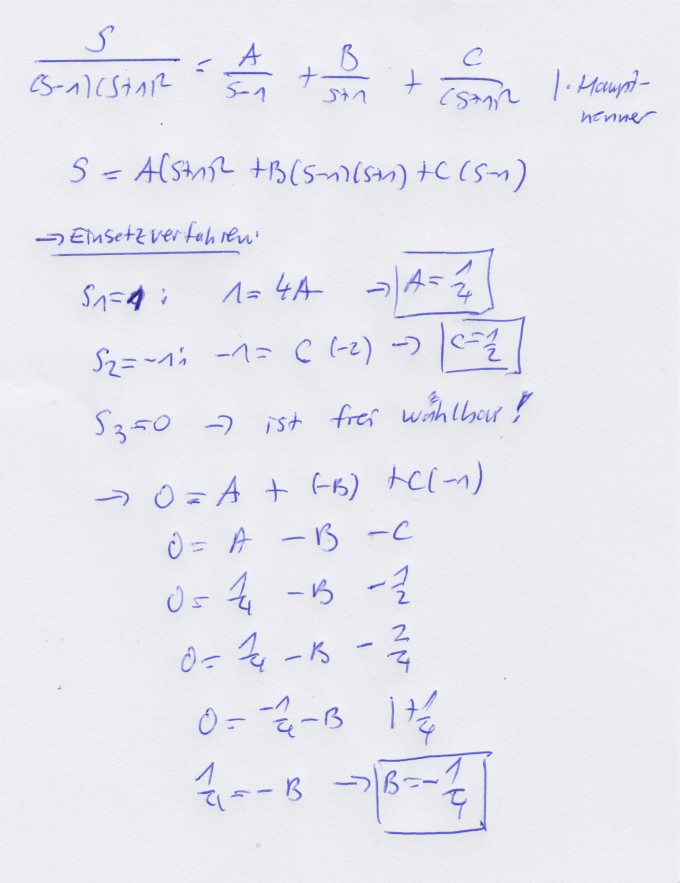 S/((S-1)(S+1)²) = A/(S-1) + B/(S+1) + C/(S+1)² | · Haupt-
nenner
S = A(S+1)² + B(S-1)(S+1) + C(S-1)
→ Einsetzverfahren:
S₁=1: 1 = 4A → A = 1/4
S₂=-1: -1 = C (-2) → C = 1/2
S₃=0 → ist frei wählbar!
→ 0 = A + (-B) + C(-1)
0 = A - B - C
0 = 1/4 - B - 1/2
0 = 1/4 - B - 2/4
0 = -1/4 - B | + 1/4
1/4 = - B → B = - 1/4